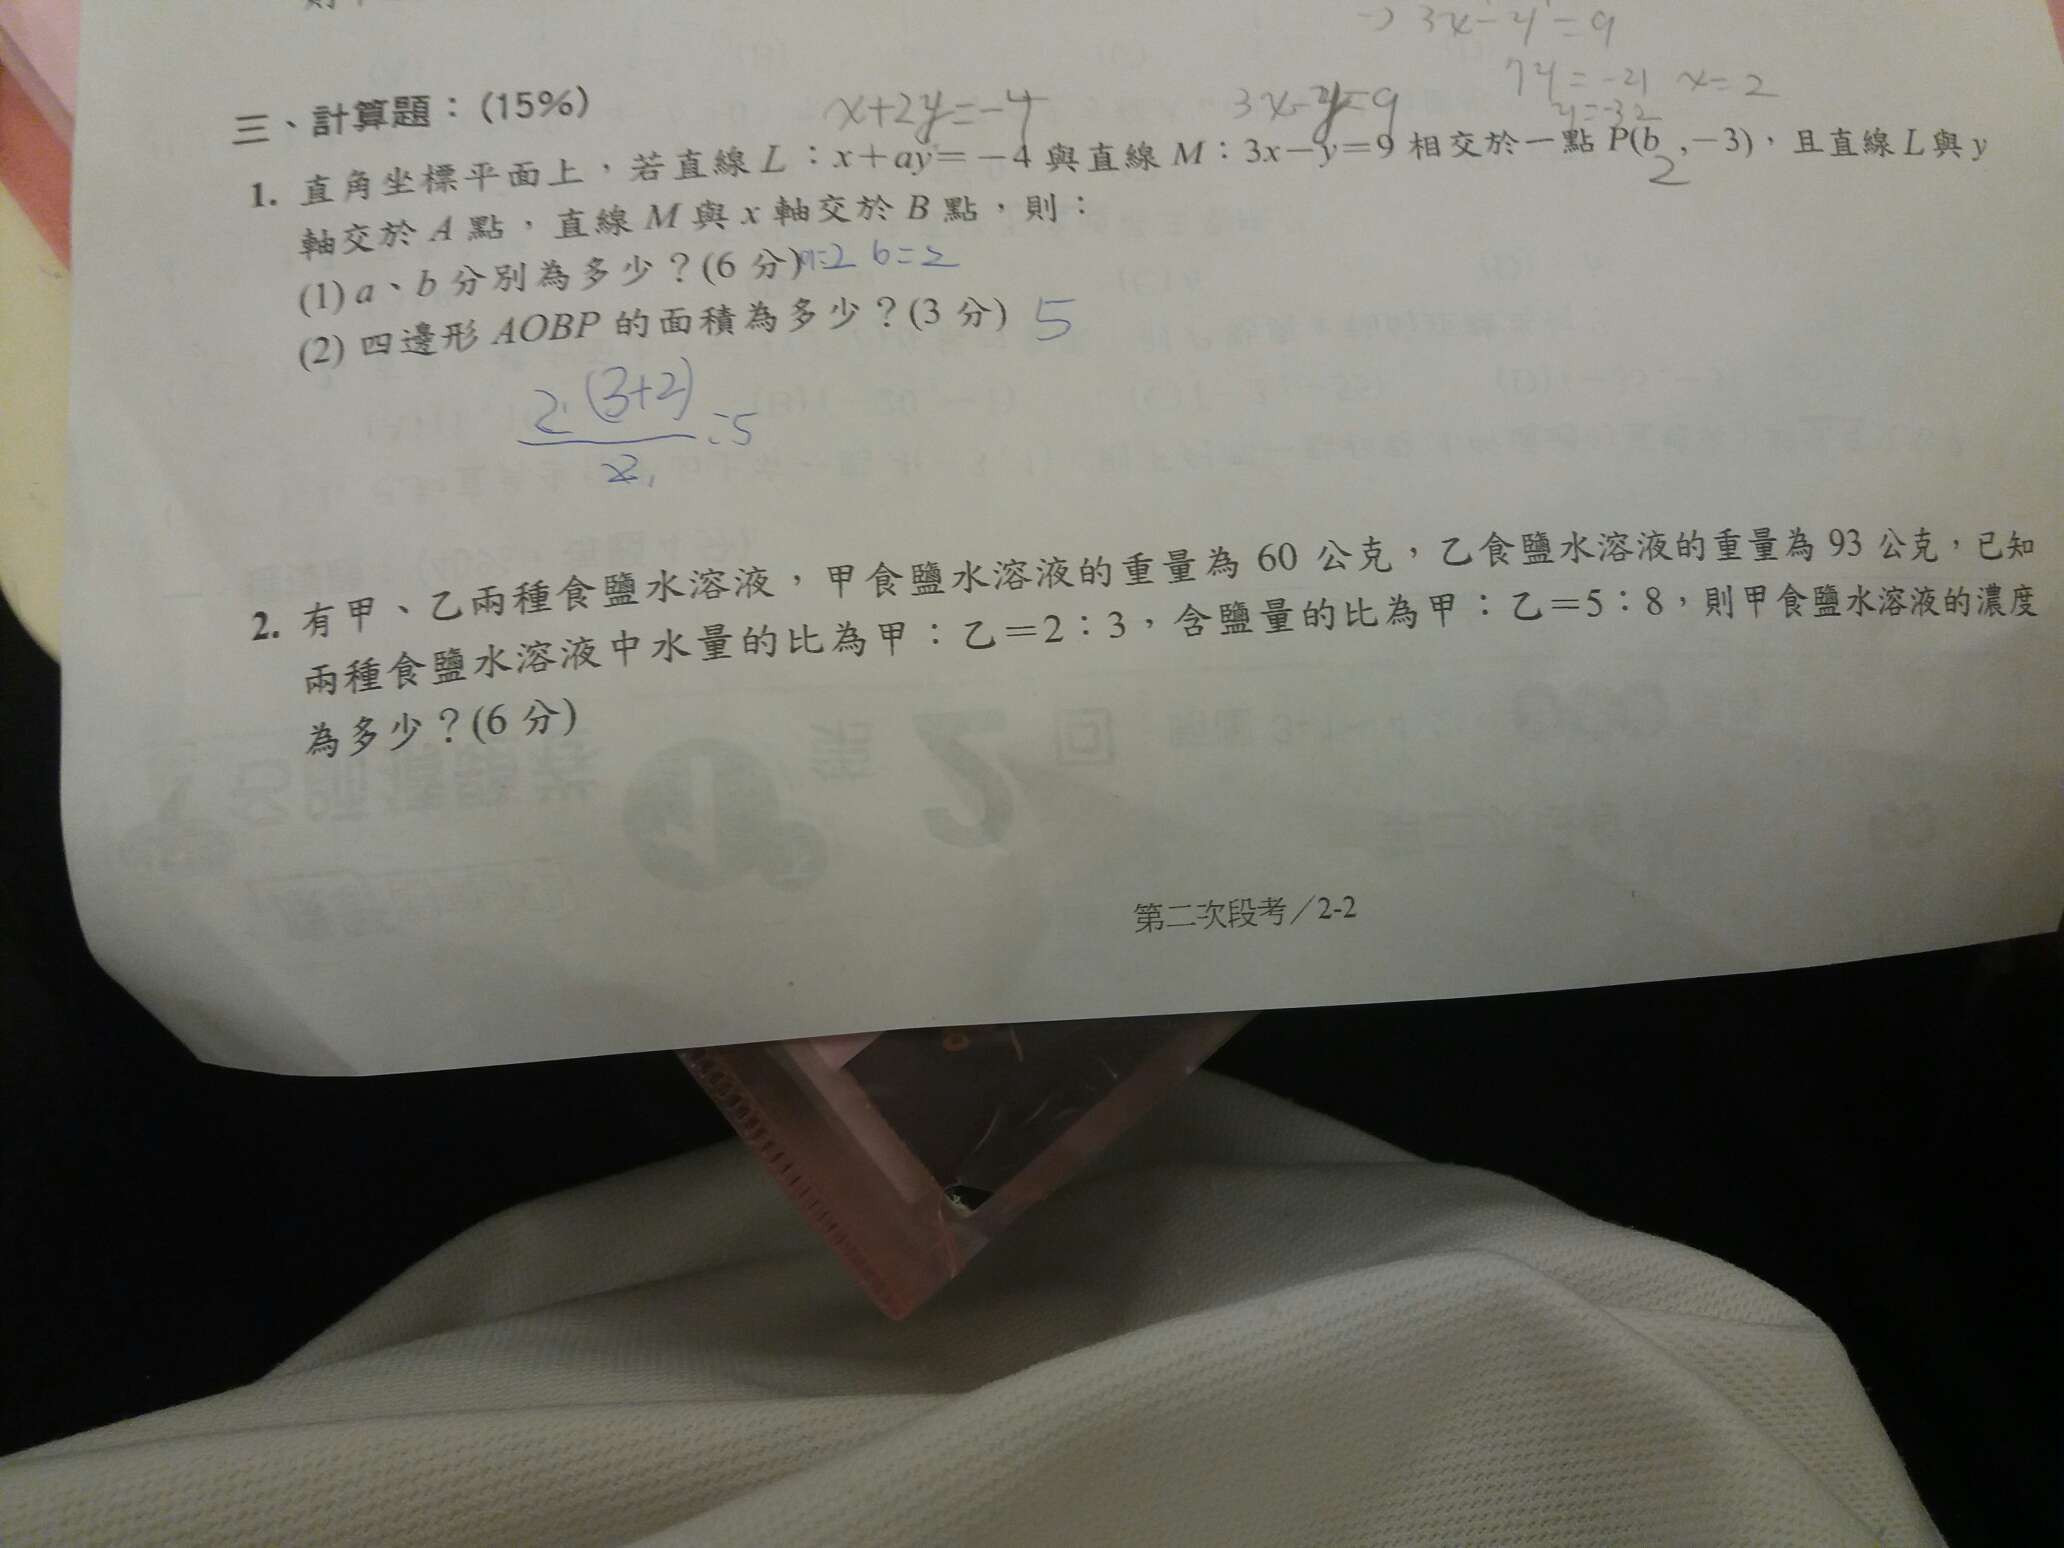 3x-y=9
7y=-21 x=2
三、計算題：(15%)
x+2y=-4
3x-y=9
1. 直角坐標平面上，若直線 L：x＋ay＝－4 與直線 M：3x－y＝9 相交於一點 P(b,－3)，且直線 L 與 y
2
軸交於 A 點，直線 M 與 x 軸交於 B 點，則：
(1) a、b 分別為多少？(6 分) a=2 b=2
(2) 四邊形 AOBP 的面積為多少？(3 分) 5
2·(3+2)
=5
2
2. 有甲、乙兩種食鹽水溶液，甲食鹽水溶液的重量為 60 公克，乙食鹽水溶液的重量為 93 公克，已知
兩種食鹽水溶液中水量的比為甲：乙＝2：3，含鹽量的比為甲：乙＝5：8，則甲食鹽水溶液的濃度
為多少？(6 分)
第二次段考／2-2